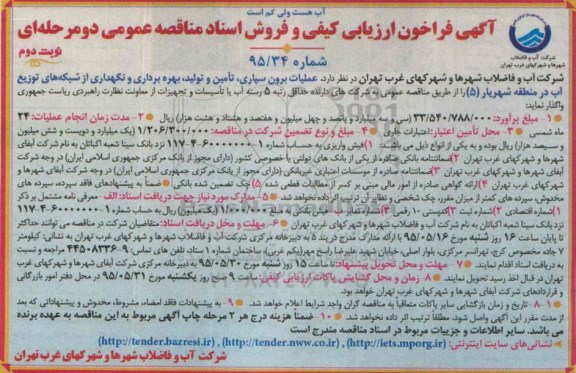 آب هست ولی کم است
آگهی فراخوان ارزیابی کیفی و فروش اسناد مناقصه عمومی دو مرحله‌ای
شماره ۹۵/۳۴
نوبت دوم
شرکت آب و فاضلاب
شهرها و شهرکهای غرب تهران
شرکت آب و فاضلاب شهرها و شهرکهای غرب تهران در نظر دارد، عملیات برون سپاری، تأمین و تولید، بهره برداری و نگهداری از شبکه‌های توزیع
آب در منطقه شهریار (۵) را از طریق مناقصه عمومی به شرکت های دارنده حداقل رتبه ۵ رسته آب یا تأسیسات و تجهیزات از معاونت نظارت راهبردی ریاست جمهوری
واگذار نماید:
۱- مبلغ برآورد: ۳۳/۵۴۰/۷۸۸/۰۰۰ (سی و سه میلیارد و پانصد و چهل میلیون و هفتصد و هشتاد و هشت هزار) ریال ۲- مدت زمان انجام عملیات: ۲۴
ماه شمسی ۳- محل تأمین اعتبار: اعتبارات جاری ۴- مبلغ و نوع تضمین شرکت در مناقصه: ۱/۲۰۶/۳۰۰/۰۰۰ (یک میلیارد و دویست و شش میلیون
و سیصد هزار) ریال بوده و به یکی از انواع ذیل می باشد: ۱) فیش واریزی به حساب شماره ۱-۶۰۰۰۰۰۰-۴-۱۱۷ نزد بانک سینا شعبه اکباتان به نام شرکت آبفای
شهرها و شهرکهای غرب تهران ۲) ضمانتنامه بانکی صادره از یکی از بانک های دولتی یا خصوصی کشور (دارای مجوز از بانک مرکزی جمهوری اسلامی ایران) در وجه شرکت
آبفای شهرها و شهرکهای غرب تهران ۳) ضمانتنامه صادره از موسسات اعتباری غیربانکی (دارای مجوز از بانک مرکزی جمهوری اسلامی ایران) در وجه شرکت آبفای شهرها و
شهرکهای غرب تهران ۴) ارائه گواهی صادره از امور مالی مبنی بر کسر از مطالبات قطعی شده ۵) چک تضمین شده بانکی ضمناً به پیشنهادهای فاقد سپرده، سپرده های
مخدوش، سپرده های کمتر از میزان مقرر، چک شخصی و نظایر آن ترتیب اثر داده نخواهد شد ۵- مدارک مورد نیاز جهت دریافت اسناد: الف - معرفی نامه مشتمل بر ذکر
۱) شماره اقتصادی ۲) شماره ثبت ۳) کدپستی ۱۰ رقمی
نزد بانک سینا شعبه اکباتان به نام شرکت آب و فاضلاب شهرها و شهرکهای غرب تهران ۶- مهلت و محل دریافت اسناد: متقاضیان شرکت در مناقصه می توانند حداکثر
تا پایان ساعت ۱۶ روز شنبه مورخ ۹۵/۰۵/۱۶ با ارائه مدارک مندرج در بند ۵ به دبیرخانه مرکزی شرکت آب و فاضلاب شهرها و شهرکهای غرب تهران به نشانی: کیلومتر
۷ جاده مخصوص کرج، تهرانسر مرکزی، بلوار اصلی، خیابان شهید علیرضا پاسخ مهر(یکم غربی)، ساختمان شماره ۱ ستاد، تلفن های تماس: ۹-۴۴۵۰۸۳۳۶ مراجعه و نسبت
به دریافت اسناد اقدام نمایند. ۷- مهلت و محل تحویل پیشنهاد: تا ساعت ۱۵ روز شنبه مورخ ۹۵/۰۵/۳۰ به دبیرخانه مرکزی شرکت آبفای شهرها و شهرکهای غرب
تهران در قبال اخذ رسید تحویل نمایند. ۸- زمان و محل گشایش پاکات ارزیابی کیفی: ساعت ۹ صبح روز یکشنبه مورخ ۹۵/۰۵/۳۱ در محل دفتر امور بازرگانی
و قراردادهای شرکت آبفای شهرها و شهرکهای غرب تهران خواهد بود.
۸-۱ تاریخ و زمان بازگشایی سایر پاکات متعاقباً به مناقصه گران واجد شرایط اعلام خواهد شد. ۹- به پیشنهادات فاقد امضاء، مشروط، مخدوش و پیشنهاداتی که بعد
از مدت مقرر این آگهی واصل شود، مطلقاً ترتیب اثر داده نخواهد شد. ۱۰- ضمناً هزینه درج هر ۲ مرحله چاپ آگهی مربوط به این مناقصه به عهده برنده
می باشد. سایر اطلاعات و جزییات مربوط در اسناد مناقصه مندرج است
نشانی‌های سایت اینترنتی: (http://iets.mporg.ir) , (http://tender.nww.co.ir) , (http://tender.bazresi.ir)
شرکت آب و فاضلاب شهرها و شهرکهای غرب تهران